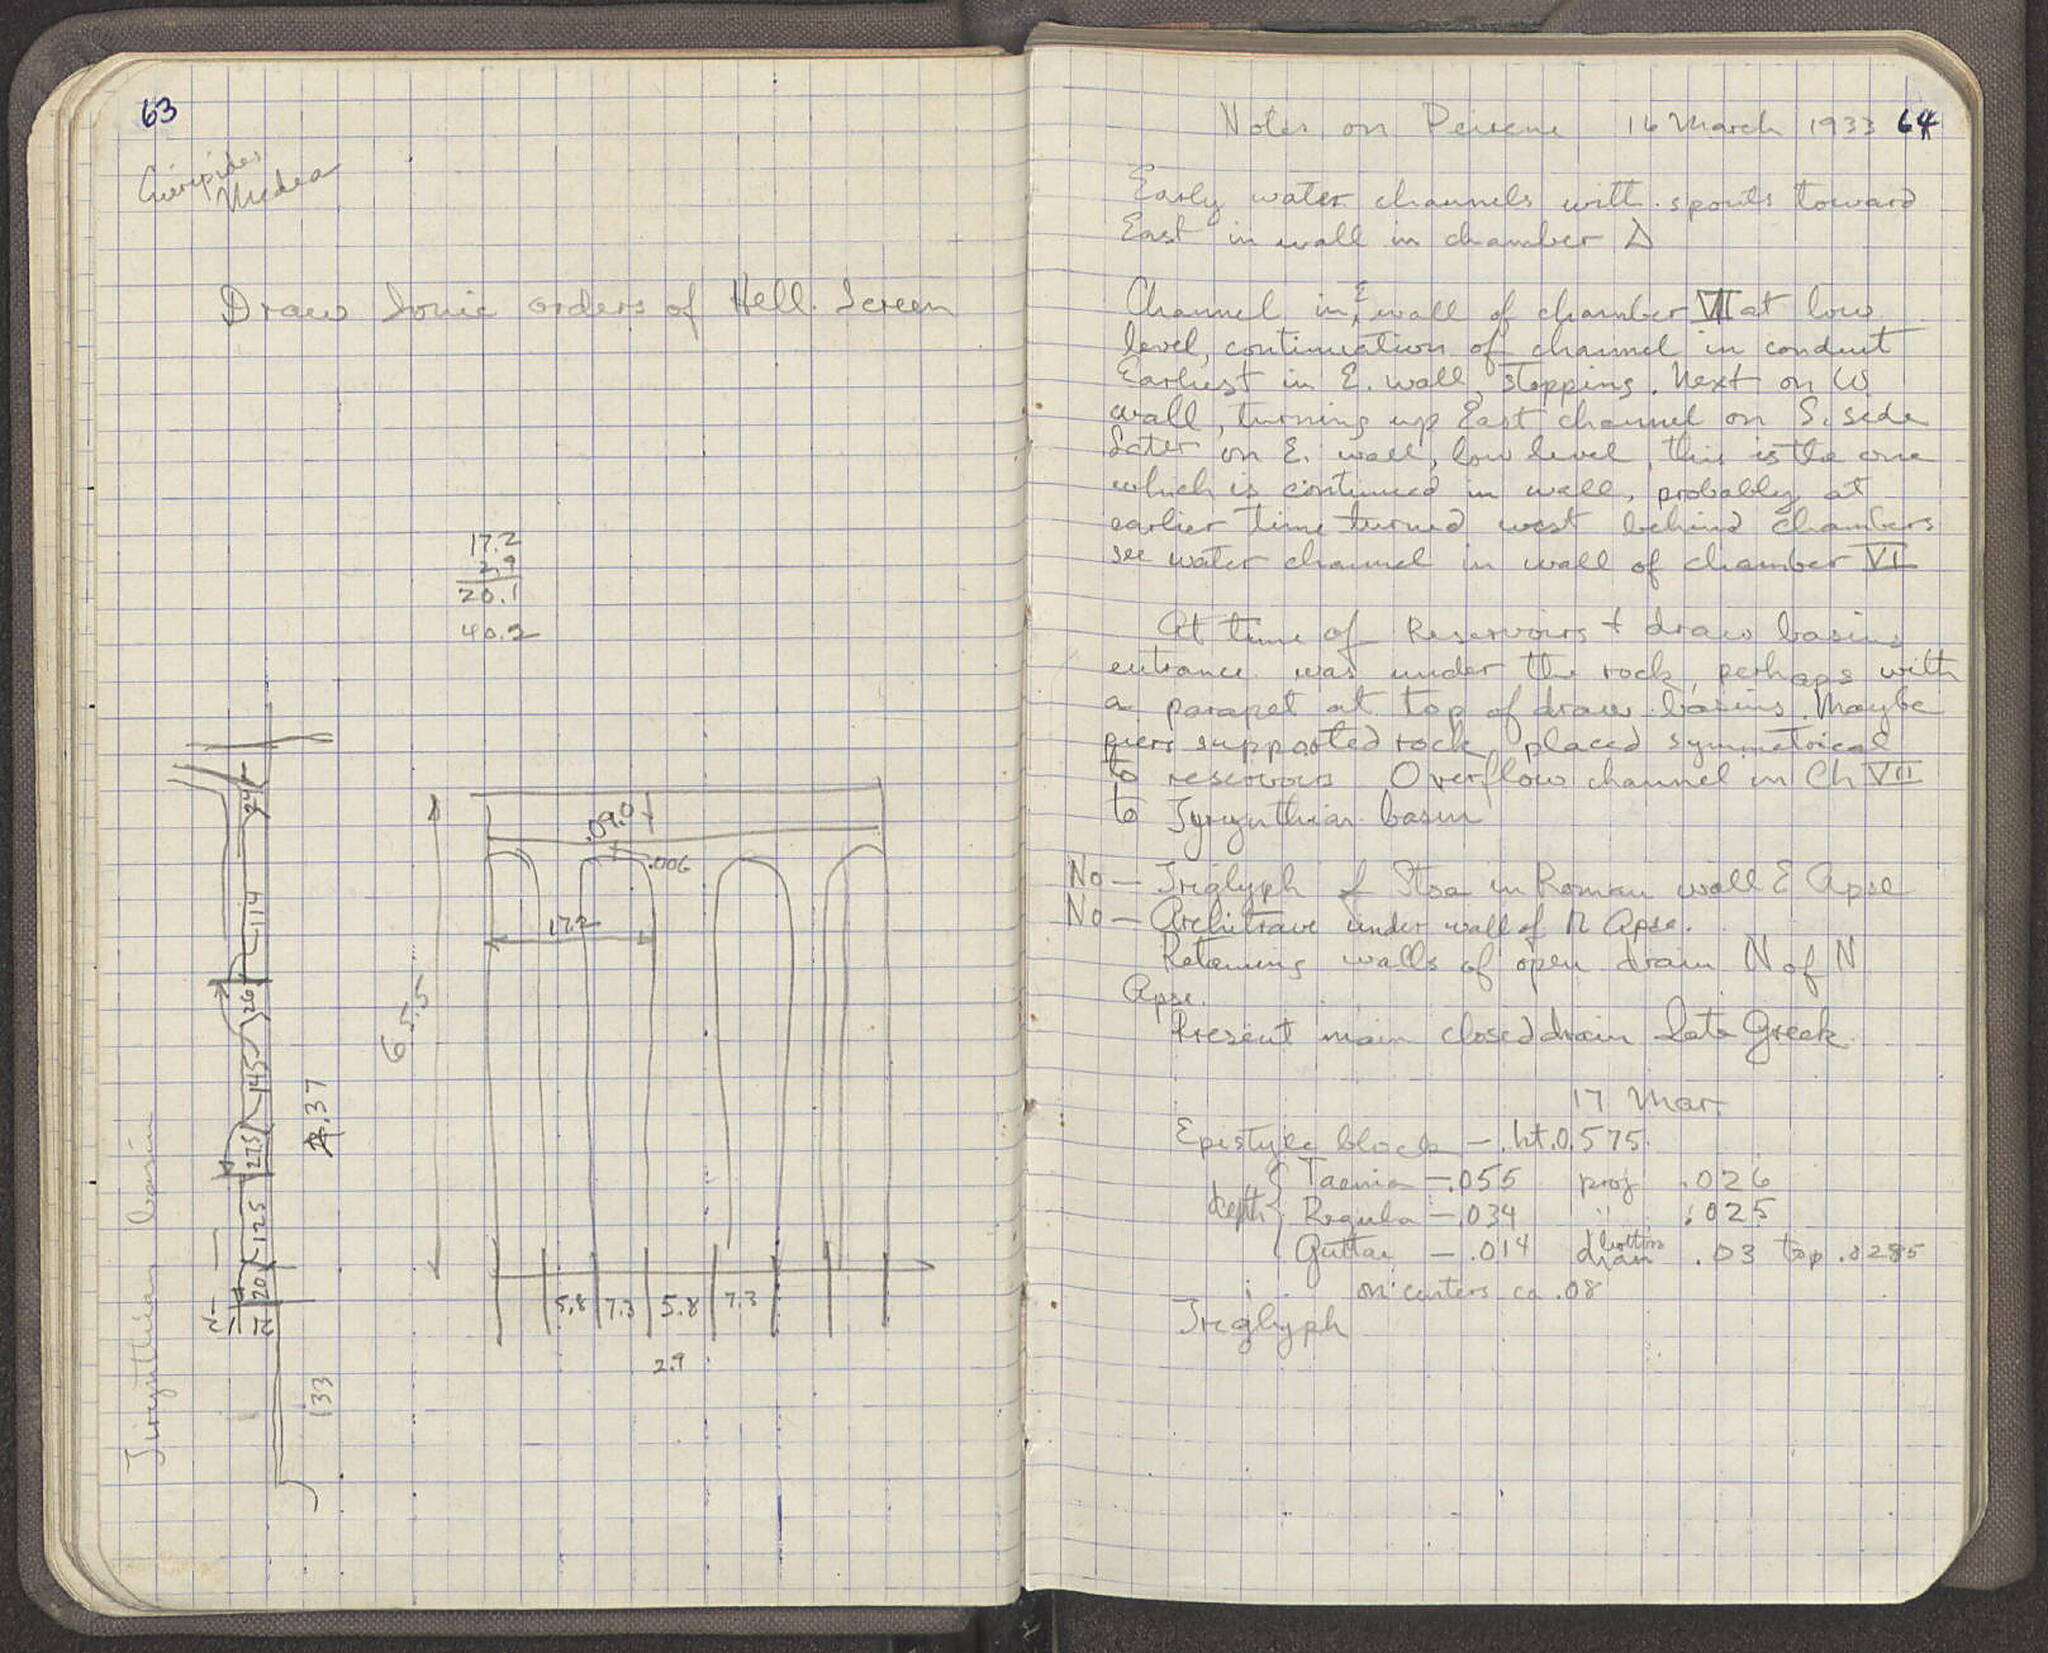 63
Euripides
Medea
Draw Ionic orders of Hell. Screen
17.2
2.9
20.1
40.2
24
114
26
145
275
125
20
.37
133
Tirynthian basin
65.5
.09.0
.006
17.2
5.8 7.3 5.8 7.3
2.9
Notes on Peirene 16 March 1933 64
Early water channels with spouts toward
East in wall in chamber Δ
Channel in E wall of chamber VII at low
level, continuation of channel in conduit
Earliest in E. wall, stopping. Next on W
wall, turning up East channel on S. side
Later on E. wall, low level, this is the one
which is continued in wall, probably at
earlier time turned west behind chambers
see water channel in wall of chamber VI
At time of Reservoirs + draw basins
entrance was under the rock, perhaps with
a parapet at top of draw basins. Maybe
piers supported rock, placed symmetrical
to reservoirs Overflow channel in Ch VII
to Tyrynthian basin
No — Triglyph of Stoa in Roman wall E Apse
No — Architrave under wall of N Apse.
Retaining walls of open drain N of N
Apse.
Present main closed drain Late Greek.
17 Mar.
Epistyle block — ht. 0.575.
depth { Taenia — .055 proj .026
Regula — .034 " .025
Guttae — .014 diam bottom .03 top .0285
on centers ca .08
Triglyph